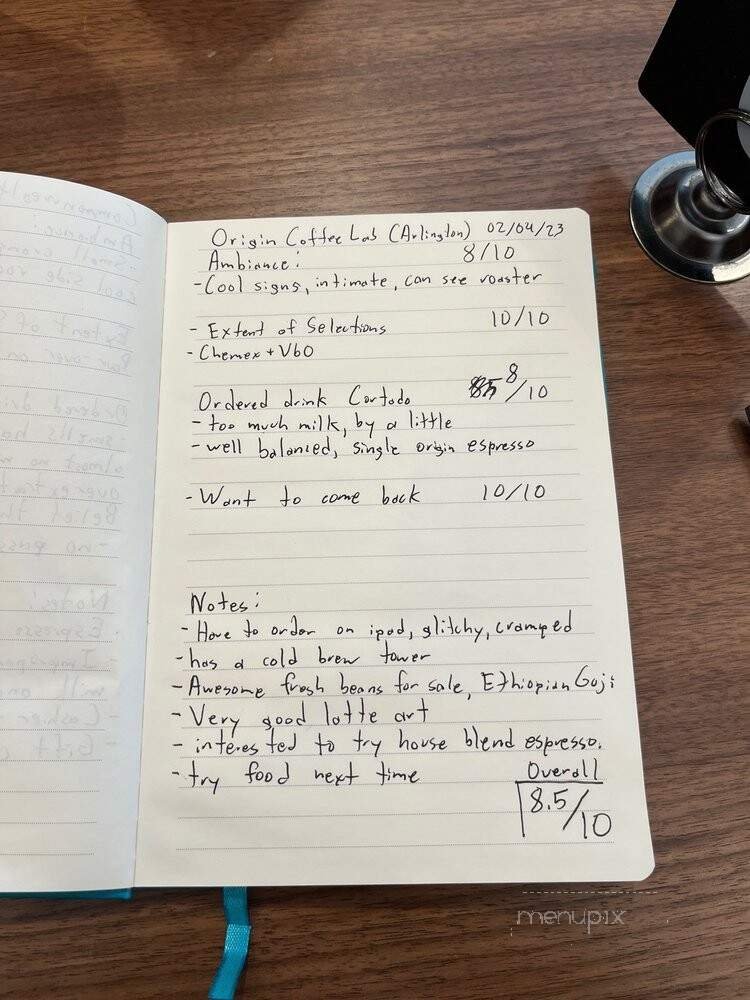 Origin Coffee Lab (Arlington) 02/04/23
Ambiance: 8/10
- Cool signs, intimate, can see roaster
- Extent of Selections 10/10
- Chemex + V60
Ordered drink Cortado 8/10
- too much milk, by a little
- well balanced, single origin espresso
- Want to come back 10/10
Notes:
- Have to order on ipad, glitchy, cramped
- has a cold brew tower
- Awesome fresh beans for sale, Ethiopian Goji
- Very good latte art
- interested to try house blend espresso.
- try food next time
Overall
8.5/10
menupix